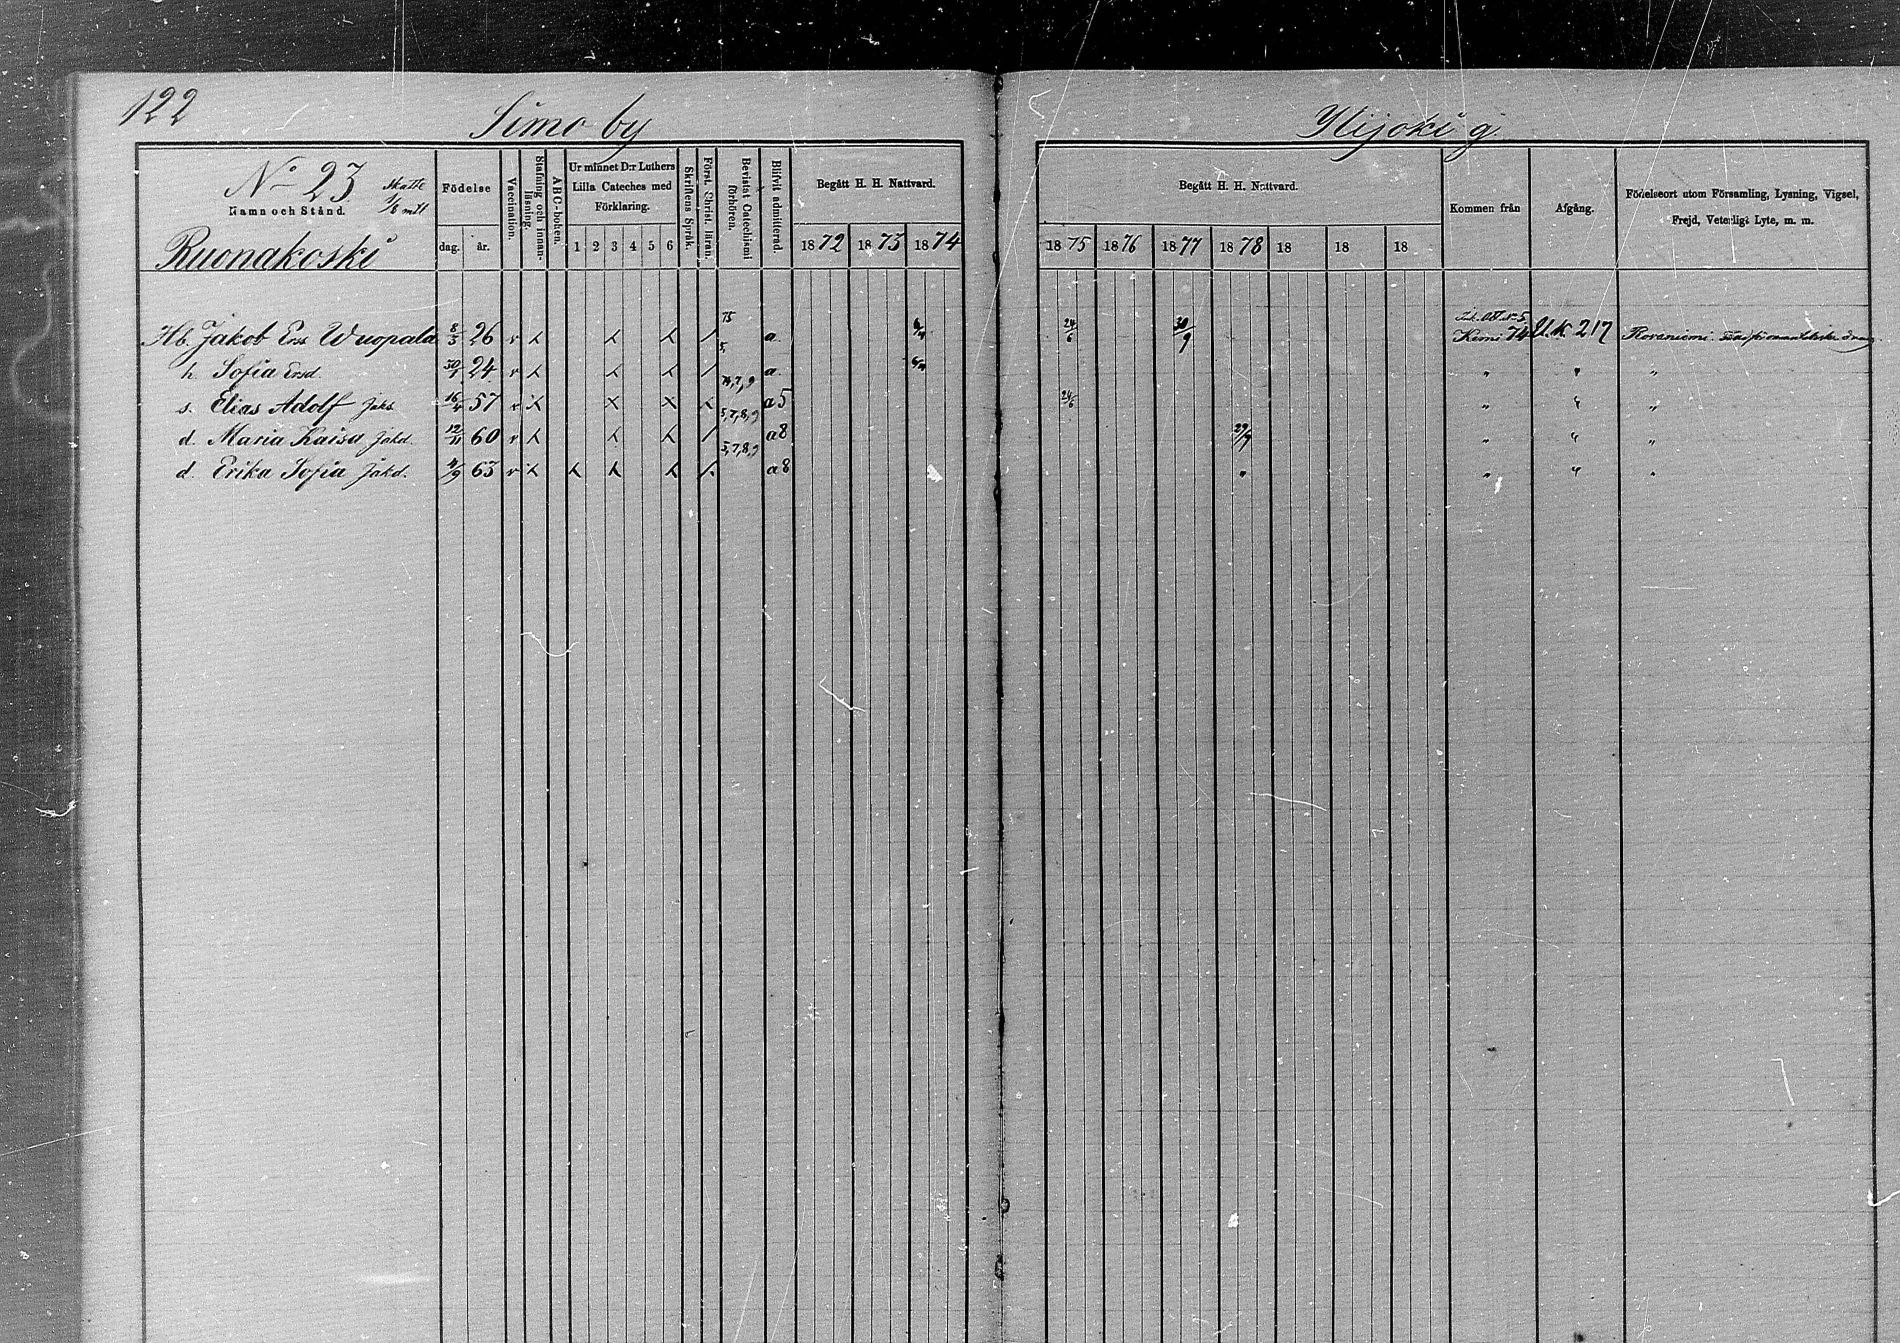 122
Simo by
Ylijoki g
No 23 Skatte
1/8 mtl
Namn och Stånd.
Ruonakoski
Födelse
dag. år.
Vaccination.
Stafning och innanläsning.
ABC-boken.
Ur minnet D:r Luthers
Lilla Cateches med
Förklaring.
1 2 3 4 5 6
Skriftens Språk.
Först. Christ. läran.
Bevistat Catechismi förhören.
Blifvit admitterad.
Begått H. H. Nattvard.
1872 1873 1874
Begått H. H. Nattvard.
1875 1876 1877 1878 18 18 18
Kommen från
Afgång.
Födelseort utom Församling, Lysning, Vigsel,
Frejd, Veterligt Lyte, m. m.
75
Hb. Jakob Erss Wuopala 8/3 26 v a. 24/6 30/9 Kemi 74 217 Rovaniemi
5,
h. Sofia Ersd. 30/1 24 v a. " " "
74, 7, 9
s. Elias Adolf Jaks 16/4 57 v a5 24/6 " " "
5, 7, 8, 9
d. Maria Kaisa Jakd. 12/11 60 v a8 29/9 " " "
5, 7, 8, 9
d. Erika Sofia Jakd. 4/9 63 v a8 " " " "